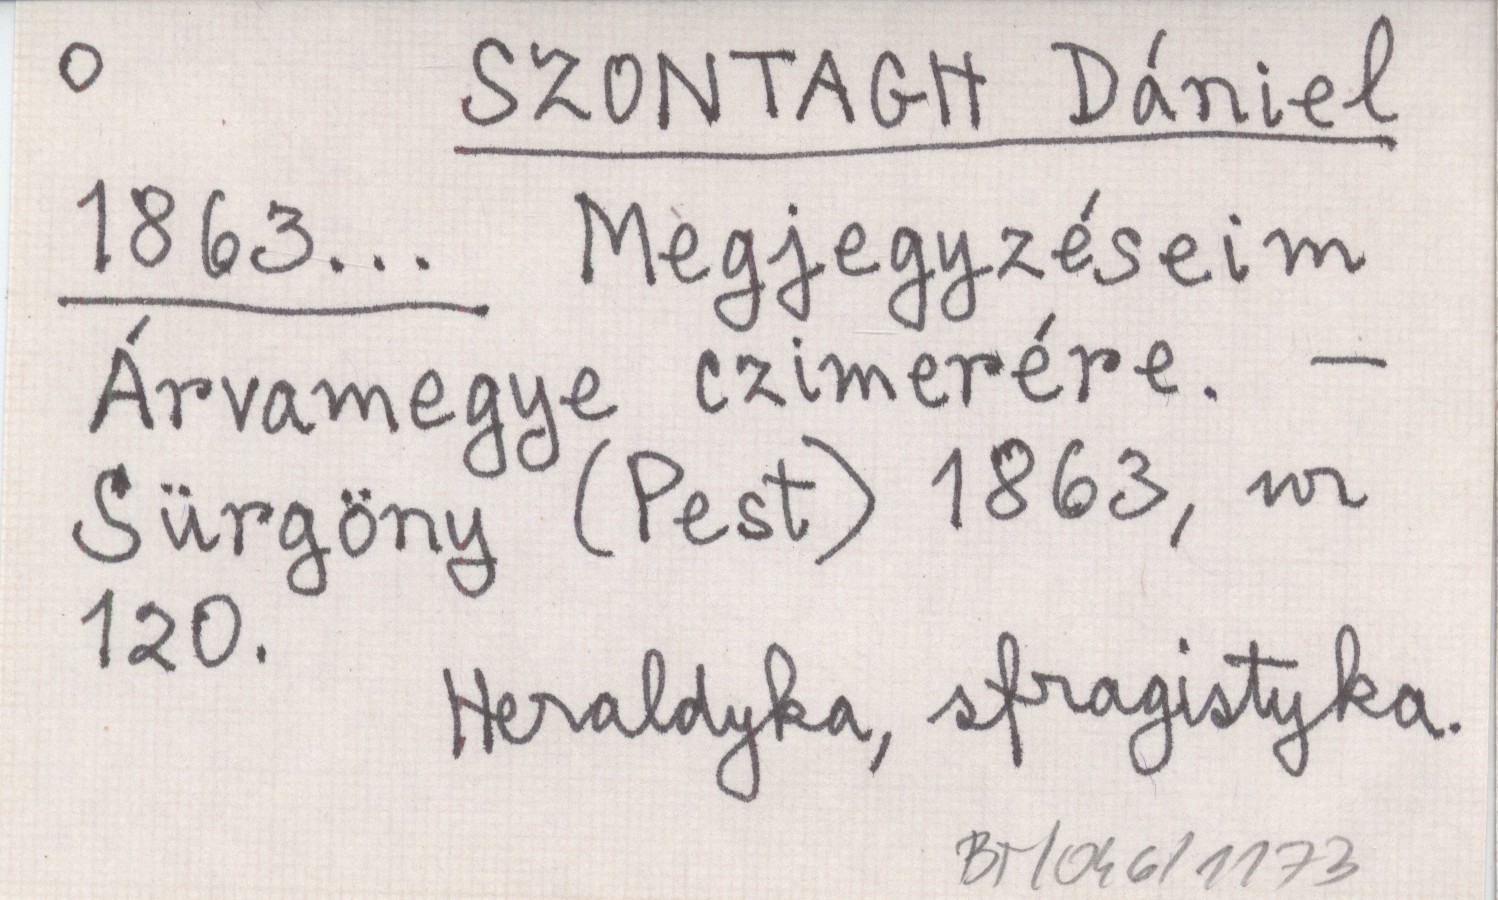 O SZONTAGH Dániel
1863... Megjegyzéseim
Árvamegye czimerére. –
Sürgöny (Pest) 1863, nr
120.
Heraldyka, sfragistyka.
BM/046/1173